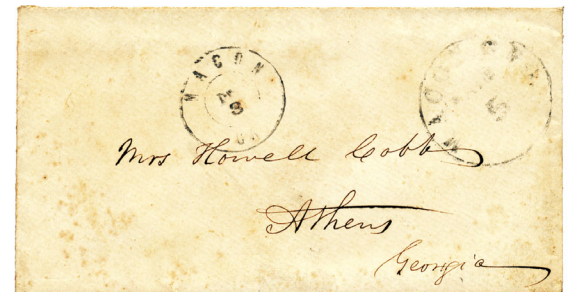 MACON
8
Mrs Howell Cobb
Athens
Georgia